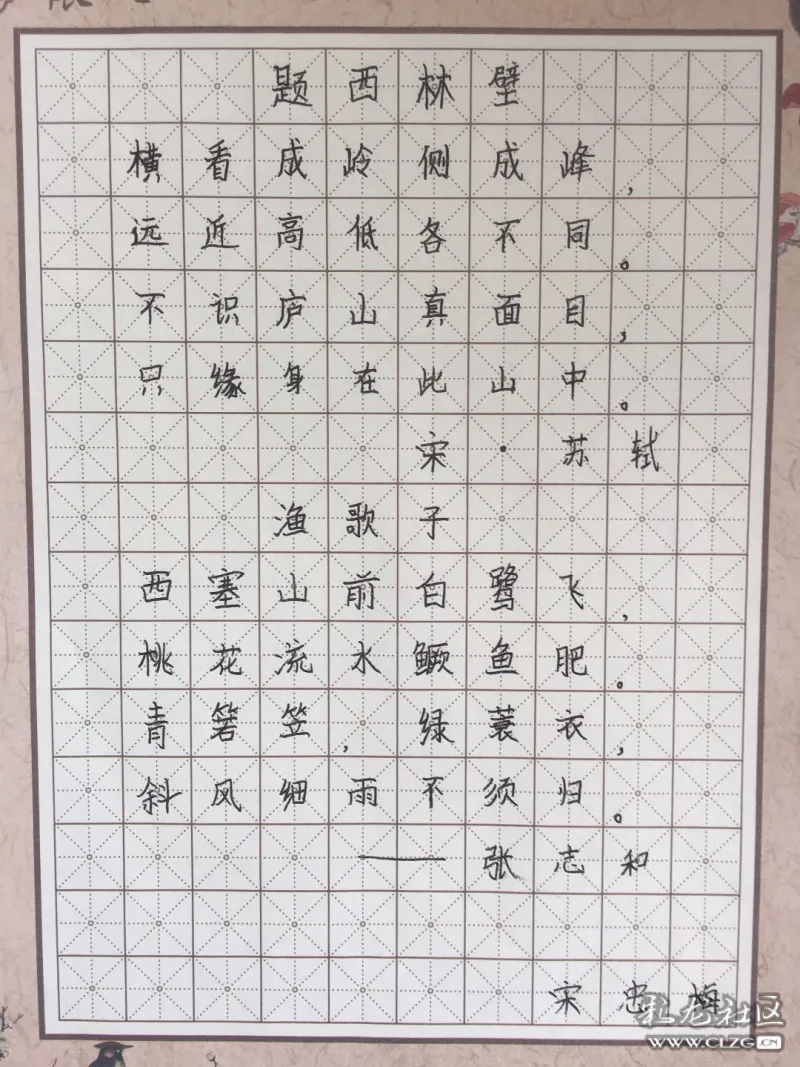 题西林壁
横看成岭侧成峰，
远近高低各不同。
不识庐山真面目，
只缘身在此山中。
宋·苏轼
渔歌子
西塞山前白鹭飞，
桃花流水鳜鱼肥。
青箬笠，绿蓑衣，
斜风细雨不须归。
——张志和
宋忠梅
社区
WWW.CLZG.CN